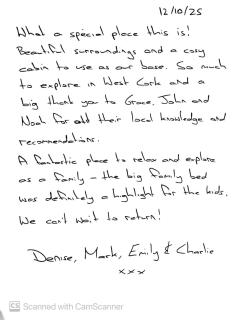 12/10/25
What a special place this is!
Beautiful surroundings and a cosy
cabin to use as our base. So much
to explore in West Cork and a
big thank you to Grace, John and
Noah for all their local knowledge and
recomendations.
A fantastic place to relax and explore
as a family – the big family bed
was definitely a highlight for the kids.
We can't wait to return!
Denise, Mark, Emily & Charlie
xxx
CS Scanned with CamScanner